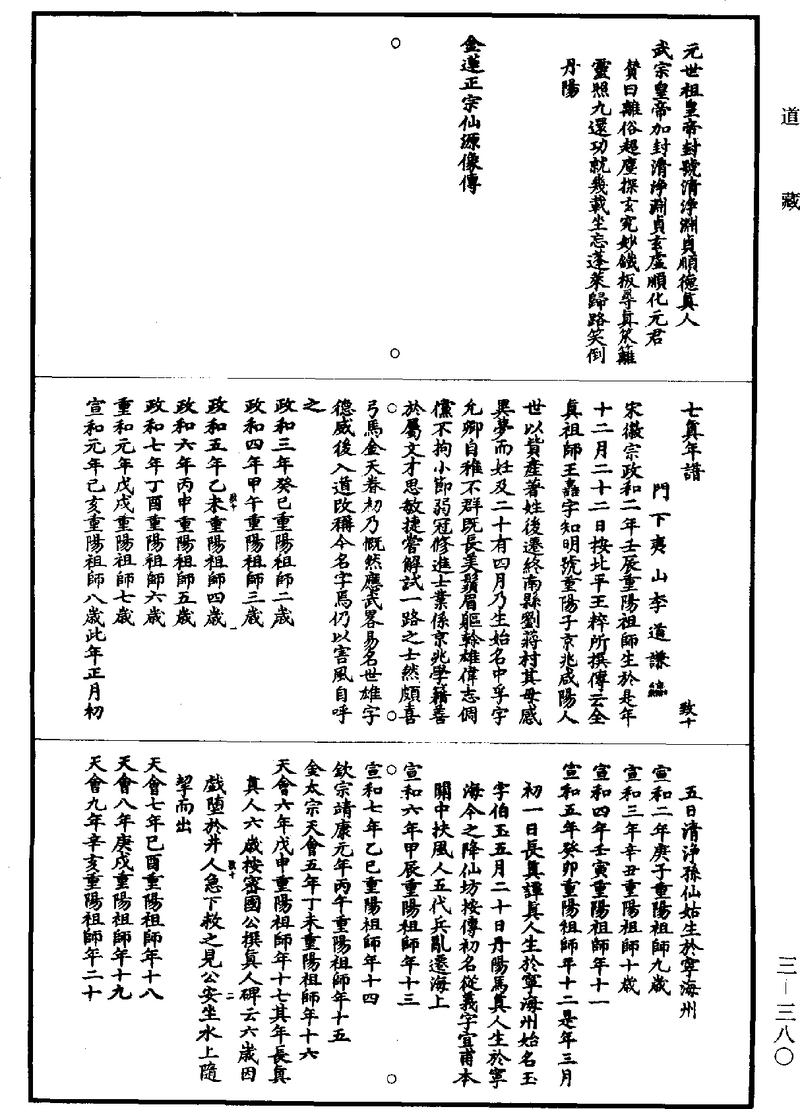 道藏
元世祖皇帝封號清淨淵貞順德真人
武宗皇帝加封清淨淵貞玄虛順化元君
贊曰離俗超塵探玄究妙鐵板尋真笊籬
靈照九還功就幾載坐忘蓬萊歸路笑倒
丹陽
金蓮正宗仙源像傳
七真年譜
致十
門下夷山李道謙編
宋徽宗政和二年壬辰重陽祖師生於是年
十二月二十二日按北平王粹所撰傳云全
真祖師王嚞字知明號重陽子京兆咸陽人
世以貲產著姓後遷終南縣劉蔣村其母感
異夢而妊及二十有四月乃生始名中孚字
允卿自稚不群既長美鬚眉軀幹雄偉志倜
儻不拘小節弱冠修進士業係京兆學籍善
於屬文才思敏捷嘗解試一路之士然頗喜
弓馬金天眷初乃慨然應武畧易名世雄字
德威後入道改稱今名字焉仍以害風自呼
之
政和三年癸巳重陽祖師二歲
政和四年甲午重陽祖師三歲
政和五年乙未重陽祖師四歲
致十
一
政和六年丙申重陽祖師五歲
政和七年丁酉重陽祖師六歲
重和元年戊戌重陽祖師七歲
宣和元年己亥重陽祖師八歲此年正月初
五日清淨孫仙姑生於寧海州
宣和二年庚子重陽祖師九歲
宣和三年辛丑重陽祖師十歲
宣和四年壬寅重陽祖師年十一
宣和五年癸卯重陽祖師年十二是年三月
初一日長真譚真人生於寧海州始名玉
字伯玉五月二十日丹陽馬真人生於寧
海今之降仙坊按傳初名從義字宜甫本
關中扶風人五代兵亂遷海上
宣和六年甲辰重陽祖師年十三
宣和七年乙巳重陽祖師年十四
欽宗靖康元年丙午重陽祖師年十五
金太宗天會五年丁未重陽祖師年十六
天會六年戊申重陽祖師年十七其年長真
真人六歲按密國公撰真人碑云六歲因
致十
二
戲墮於井人急下救之見公安坐水上隨
挈而出
天會七年己酉重陽祖師年十八
天會八年庚戌重陽祖師年十九
天會九年辛亥重陽祖師年二十
三—三八〇